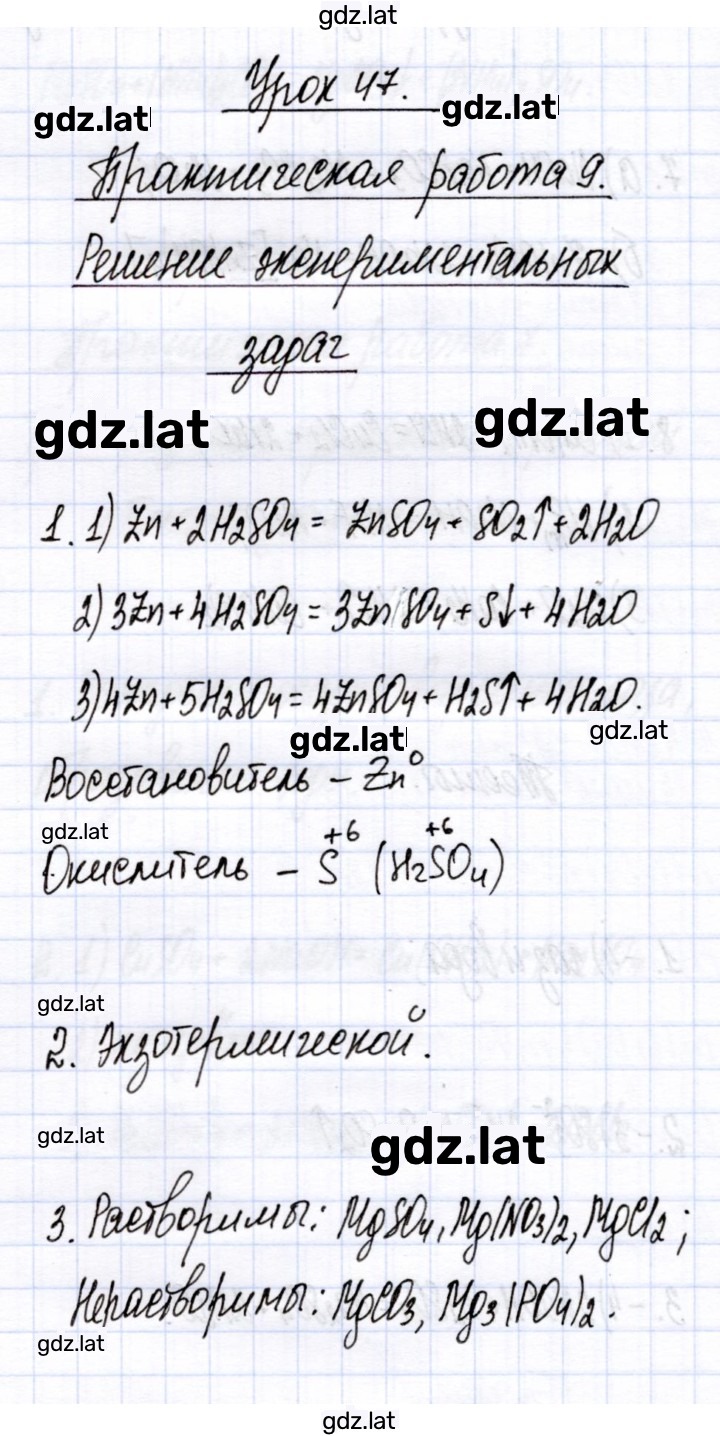 gdz.lat
Урок 47.
gdz.lat gdz.lat
Практическая работа 9.
Решение экспериментальных
задач
gdz.lat gdz.lat
1. 1) Zn + 2H2SO4 = ZnSO4 + SO2↑ + 2H2O
2) 3Zn + 4H2SO4 = 3ZnSO4 + S↓ + 4H2O
3) 4Zn + 5H2SO4 = 4ZnSO4 + H2S↑ + 4H2O.
gdz.lat gdz.lat
Восстановитель – Zn⁰
gdz.lat +6 +6
Окислитель – S (H2SO4)
gdz.lat
2. Экзотермической.
gdz.lat gdz.lat
3. Растворимы: MgSO4, Mg(NO3)2, MgCl2;
Нерастворимы: MgCO3, Mg3(PO4)2.
gdz.lat
gdz.lat